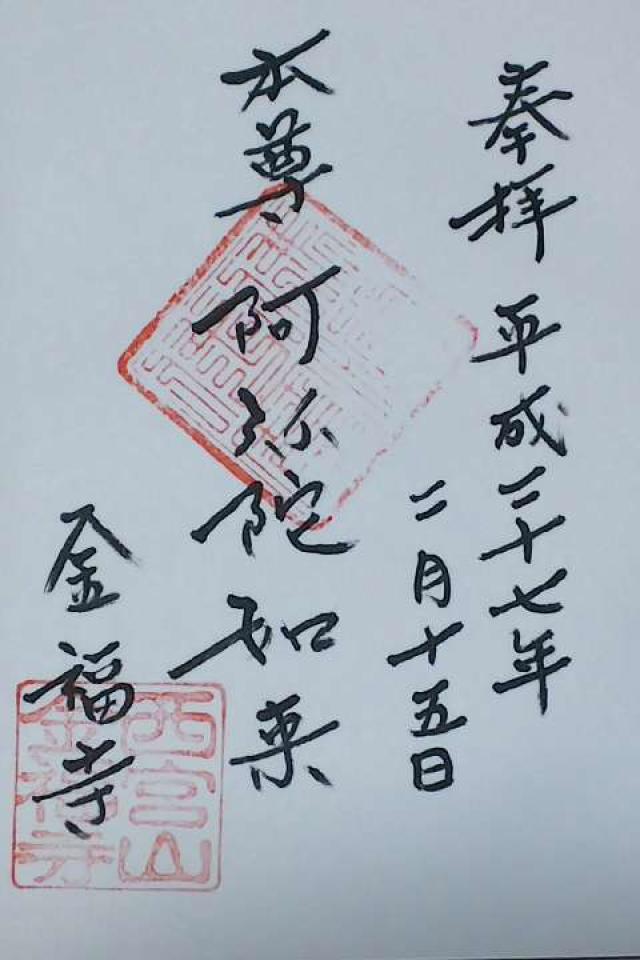 奉拝 平成二十七年
二月十五日
本尊 阿弥陀如来
金福寺
西宮山
金福寺